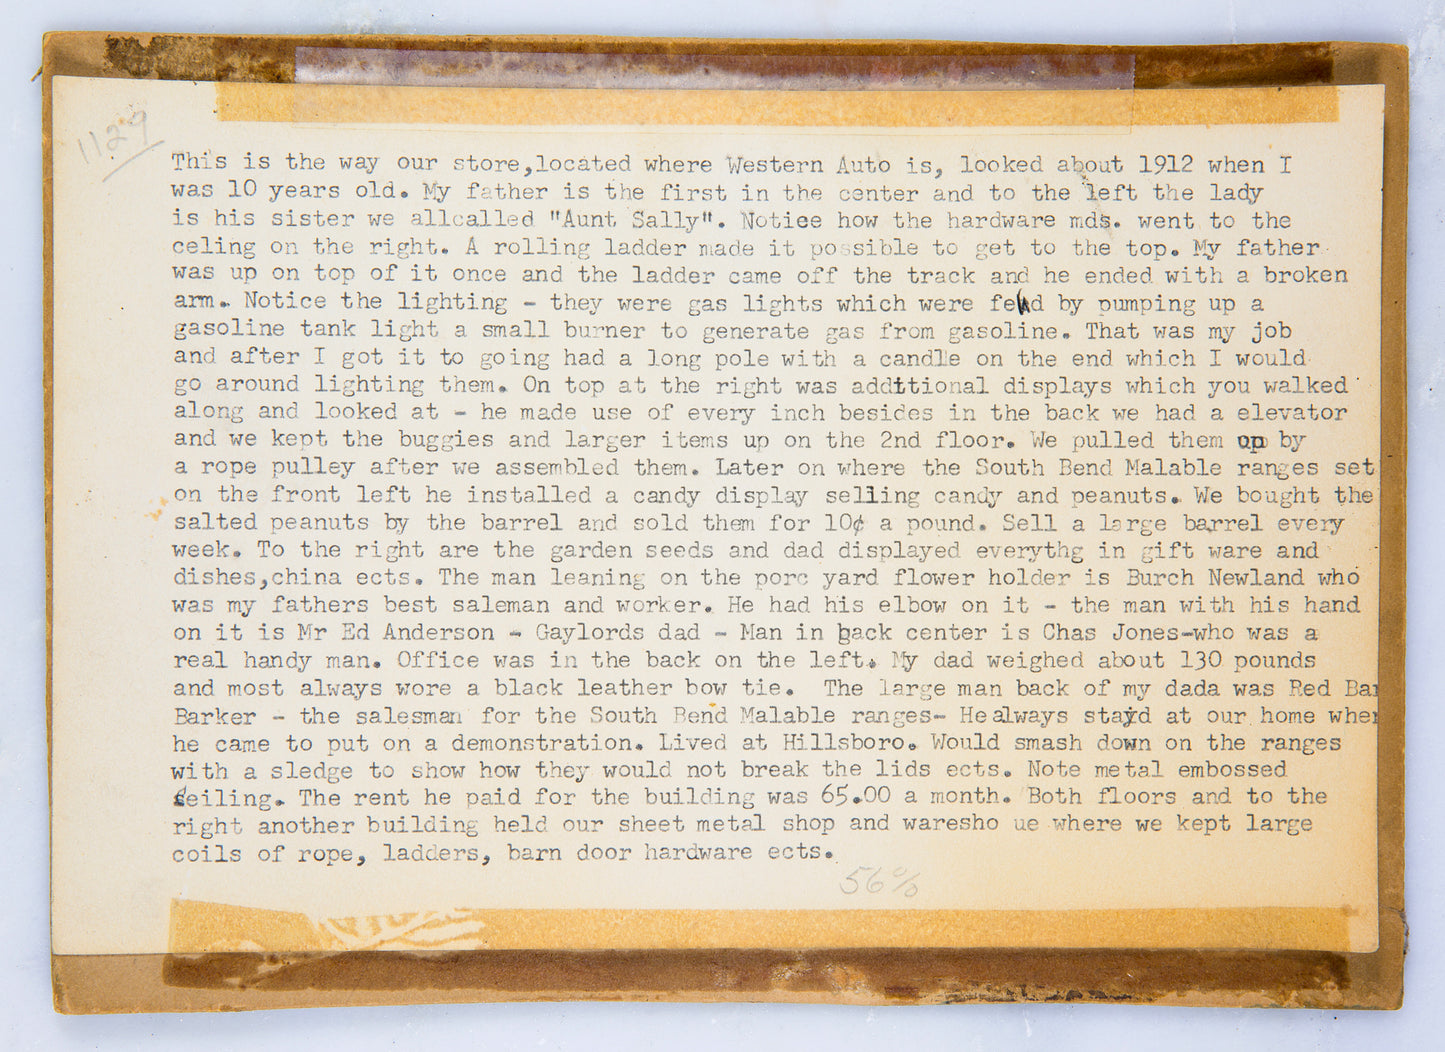 1129
This is the way our store,located where Western Auto is, looked about 1912 when I
was 10 years old. My father is the first in the center and to the left the lady
is his sister we allcalled "Aunt Sally". Notice how the hardware mds. went to the
celing on the right. A rolling ladder made it possible to get to the top. My father
was up on top of it once and the ladder came off the track and he ended with a broken
arm. Notice the lighting - they were gas lights which were fed by pumping up a
gasoline tank light a small burner to generate gas from gasoline. That was my job
and after I got it to going had a long pole with a candle on the end which I would
go around lighting them. On top at the right was additional displays which you walked
along and looked at - he made use of every inch besides in the back we had a elevator
and we kept the buggies and larger items up on the 2nd floor. We pulled them up by
a rope pulley after we assembled them. Later on where the South Bend Malable ranges set
on the front left he installed a candy display selling candy and peanuts. We bought the
salted peanuts by the barrel and sold them for 10¢ a pound. Sell a large barrel every
week. To the right are the garden seeds and dad displayed everythg in gift ware and
dishes,china ects. The man leaning on the porc yard flower holder is Burch Newland who
was my fathers best saleman and worker. He had his elbow on it - the man with his hand
on it is Mr Ed Anderson - Gaylords dad - Man in back center is Chas Jones-who was a
real handy man. Office was in the back on the left. My dad weighed about 130 pounds
and most always wore a black leather bow tie.  The large man back of my dada was Red Bar
Barker - the salesman for the South Bend Malable ranges- Healways stayd at our home when
he came to put on a demonstration. Lived at Hillsboro. Would smash down on the ranges
with a sledge to show how they would not break the lids ects. Note metal embossed
ceiling. The rent he paid for the building was 65.00 a month. Both floors and to the
right another building held our sheet metal shop and waresho ue where we kept large
coils of rope, ladders, barn door hardware ects.
56%